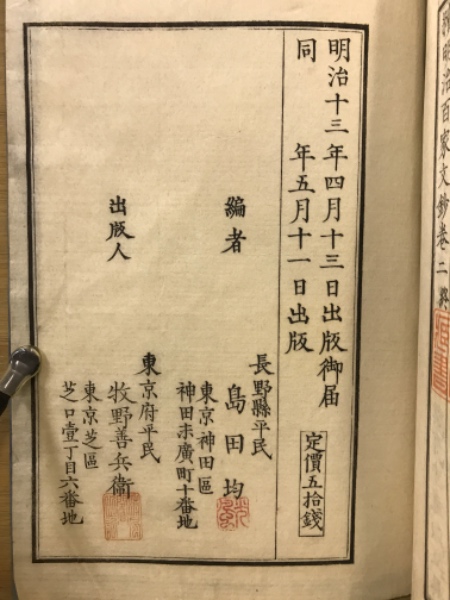 明治百家文鈔卷二終
明治十三年四月十三日出版御届
同年五月十一日出版
定價五拾錢
編者
長野縣平民
島田均
東京神田區
神田末廣町十番地
出版人
東京府平民
牧野善兵衞
東京芝區
芝口壹丁目六番地